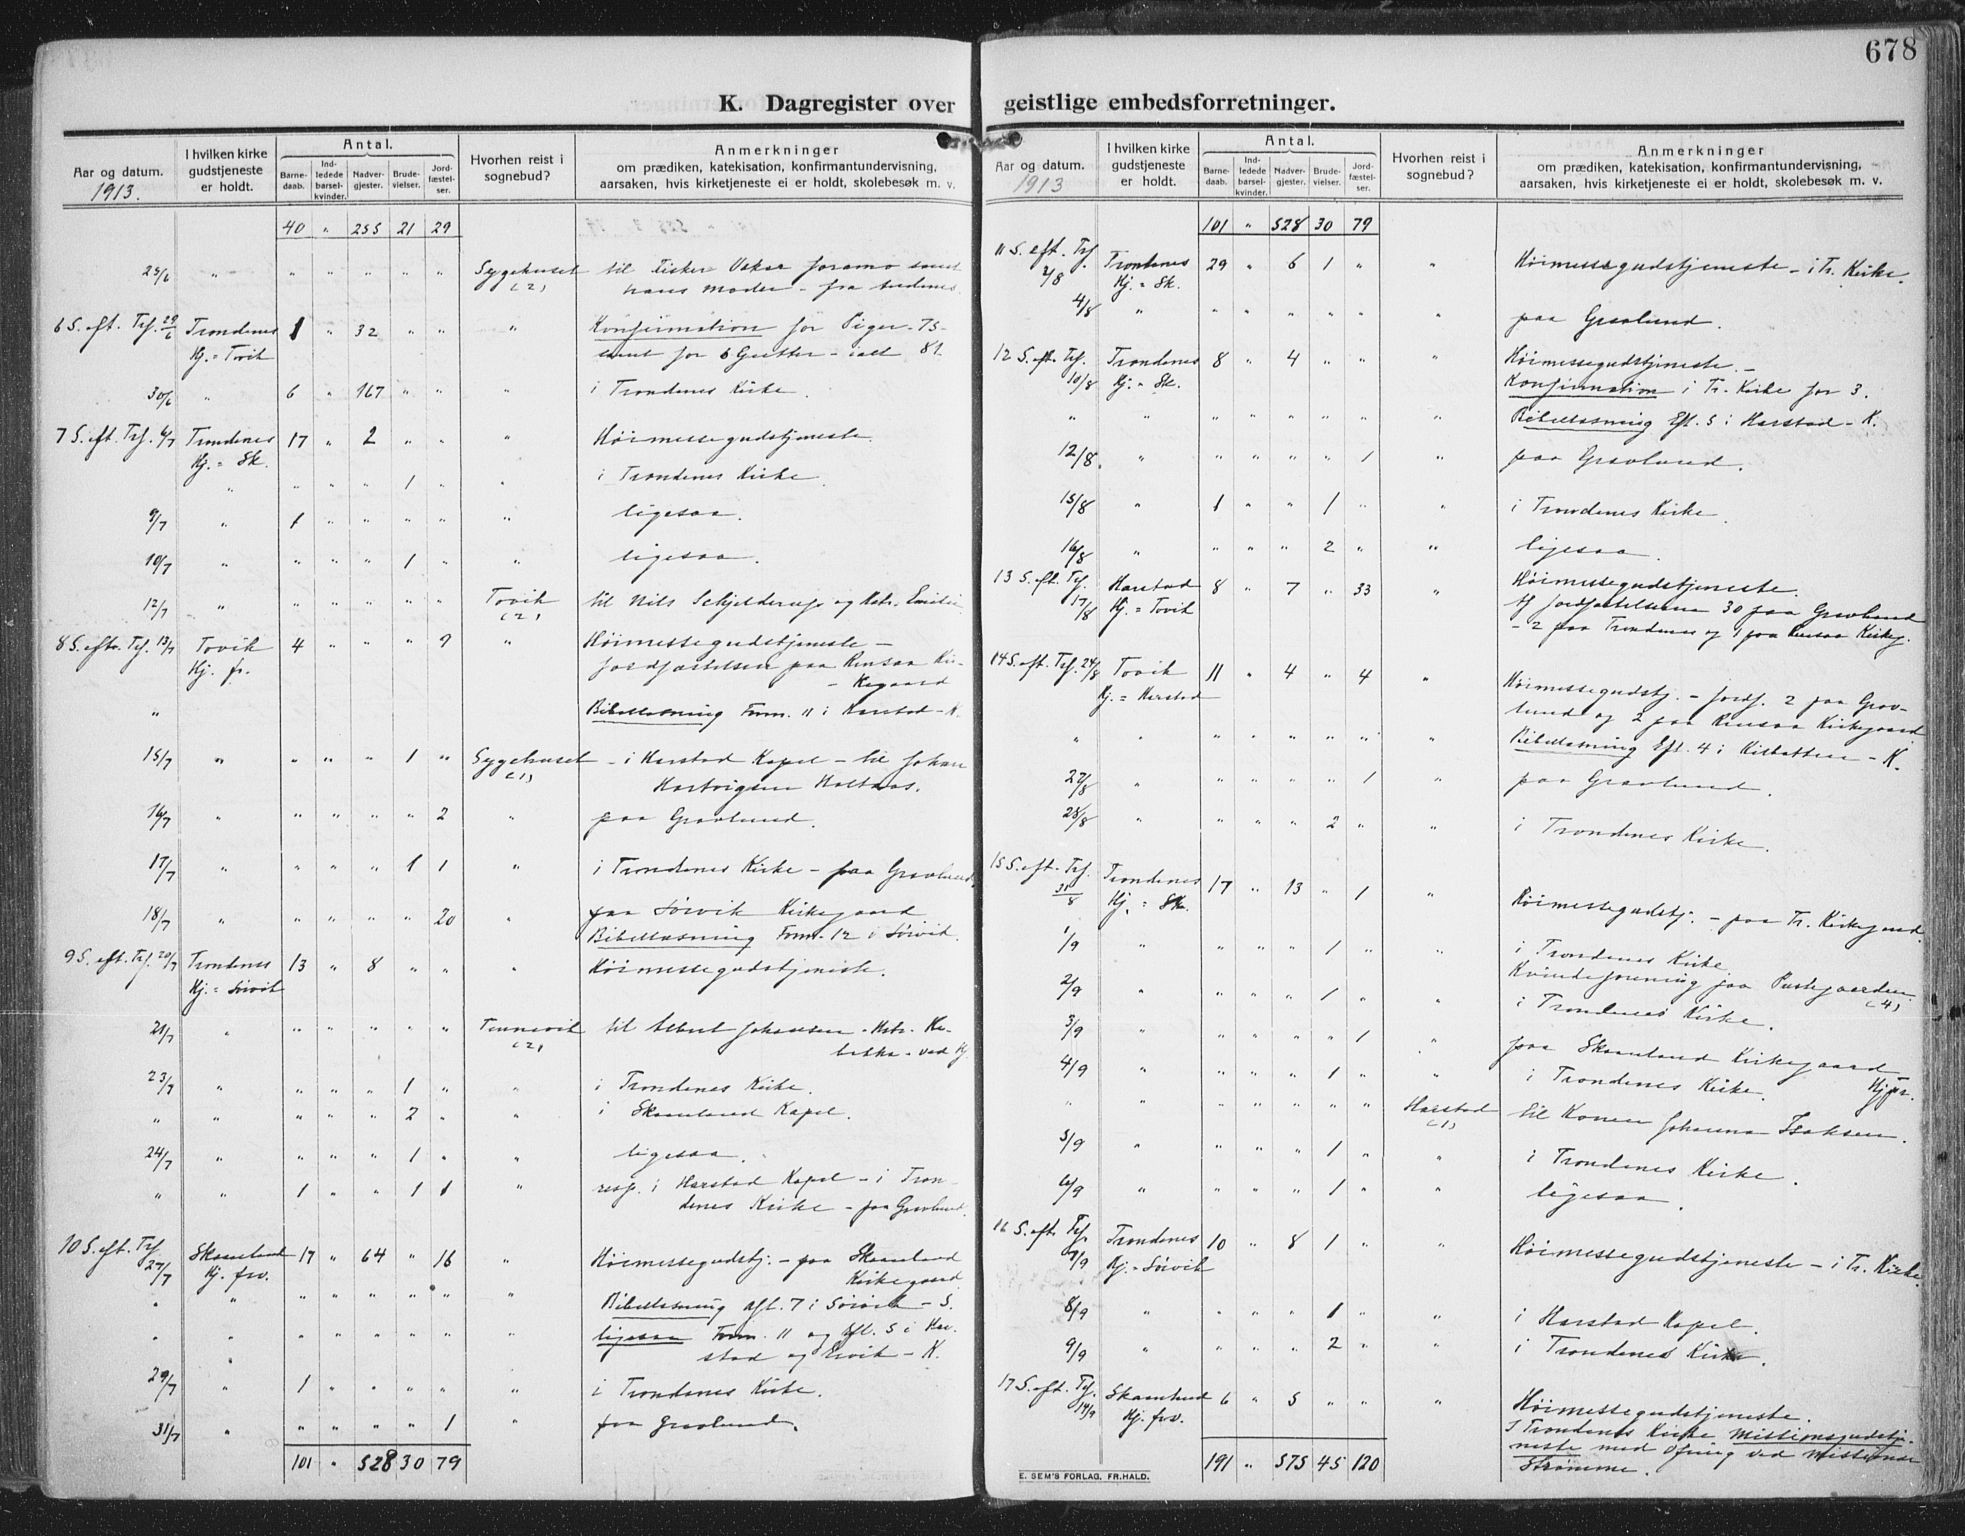 678
K. Dagregister over geistlige embedsforretninger.
Aar og datum.
1913.
I hvilken kirke gudstjeneste er holdt.
Antal.
Barne-daab.
Ind-ledede barsel-kvinder.
Nadver-gjester.
Brude-vielser.
Jord-fæstel-ser.
Hvorhen reist i sognebud?
Anmerkninger
om prædiken, katekisation, konfirmantundervisning,
aarsaken, hvis kirketjeneste ei er holdt, skolebesøk m. v.
40 " 255 21 29
25/6 " " " " " " Sygehuset (2) til Fisker
hans moder - fra
6 S. eft. Trf. 29/6 Trondenes 1 " 32 " " " Konfirmation for Piger - 75 -
Kj. = Tovik samt for 6 Gutter - ialt 81.
30/6 " 6 " 167 " " " i Trondenes Kirke.
7 S. eft. Trf. 6/7 Trondenes 17 " 2 " " " Høimessegudstjeneste.
Kj. = Sk.
" " " " 1 " " i Trondenes Kirke.
9/7 " 1 " " " " " ligesaa.
10/7 " " " " 1 " " ligesaa.
12/7 " " " " " " Tovik (2) til Nils Schjelderup og Hstr. Emilie
8 S. eftr. Trf. 13/7 Tovik 4 " " " 9 " Høimessegudstjeneste -
Kj. fr. Jordfæstelsen paa Rensaa Kir-
- kegaard
" Bibellæsning Form. 11 i Harstad - K.
15/7 " " " " 1 " Sygehuset (1) - i Harstad Kapel - til Johan
Hartvigsen Holtaas.
16/7 " " " " " 2 " paa Gravlund.
17/7 " " " " 1 1 " i Trondenes Kirke - paa Gravlund.
18/7 " " " " " 20 " paa Sørvik Kirkegaard
Bibellæsning Form. 12 i Sørvik.
9 S. eft. Trf. 20/7 Trondenes 13 " 8 " " " Høimessegudstjeneste.
Kj. = Sørvik
21/7 " " " " " " Tennevik (2) til Albert Johansen - Hstr. Re-
bekka - ved Kj
23/7 " " " " 1 " " i Trondenes Kirke.
" " " " " 2 " " i Skaanland Kapel.
24/7 " " " " 1 " " ligesaa.
" " 1 " " 1 1 " resp. i Harstad Kapel - i Tron-
denes Kirke - paa Gravlund.
10 S. eft. Trf. 27/7 Skaanland 17 " 64 " 16 " Høimessegudstj. - paa Skaanland
Kj. frv. Kirkegaard
" " " " " " " " Bibellæsning Aft. 7 i Sørvik - S.
" " " " " " " " ligesaa Form. 11 og Eft. 5 i Har-
stad og Ervik - K.
29/7 " 1 " " " " " i Trondenes Kirke.
31/7 " " " " " 1 " paa Gravlund.
101 " 528 30 79
Aar og datum.
1913
I hvilken kirke gudstjeneste er holdt.
Antal.
Barne-daab.
Ind-ledede barsel-kvinder.
Nadver-gjester.
Brude-vielser.
Jord-fæstel-ser.
Hvorhen reist i sognebud?
Anmerkninger
om prædiken, katekisation, konfirmantundervisning,
aarsaken, hvis kirketjeneste ei er holdt, skolebesøk m. v.
101 " 528 30 79
11 S. eft. Trf. 2/8 Trondenes 29 " 6 1 " " Høimessegudstjeneste - i Tr. Kirke.
Kj. = Sk.
4/8 " " " " " " " paa Gravlund.
12 S. eft. Trf. 10/8 Trondenes 8 " 4 " " " Høimessegudstjeneste. -
Kj. = Sk. Konfirmation i Tr. Kirke for 3.
" " " " " " " Bibellæsning Eft. 5 i Harstad - K.
12/8. " " " " " 1 " paa Gravlund.
15/8 " 1 " " 1 " " i Trondenes Kirke.
16/8 " " " " 2 " " ligesaa.
13 S. eft. Trf. 17/8 Harstad 8 " 7 " 33 Høimessegudstjeneste.
Kj. = Tovik Af Jordfæstelserne 30 paa Gravlund
- 2 paa Trondenes og 1 paa Rensaa Kirkeg.
14 S. eft. Trf. 24/8 Tovik 11 " 4 " 4 " Høimessegudstj. - Jordf. 2 paa Grav-
Kj. = Harstad lund og 2 paa Rensaa Kirkegaard
" " " " " " " " Bibellæsning Eft. 4 i - K.
27/8 " " " " " 1 " paa Gravlund.
28/8 " " " " 2 " " i Trondenes Kirke.
15 S. eft. Trf. 31/8 Trondenes 17 " 13 " 1 " Høimessegudstj. - paa Tr. Kirkegaard.
Kj. = Sk.
1/9 " " " " 1 " " i Trondenes Kirke.
Kvindeforening paa Prestegaarden (4)
2/9 " " " " 1 " " i Trondenes Kirke.
3/9 " " " " " 1 " paa Skaanland Kirkegaard
Kj. fr.
4/9 " " " " 1 " " i Trondenes Kirke.
" " " " " " " Harstad (1) til Konen Johanna Isaksen.
5/9 " " " " 1 " " i Trondenes Kirke.
6/9 " " " " 1 " " ligesaa.
16 S. eft. Trf. 7/9 Trondenes 10 " 8 1 " " Høimessegudstjeneste - i Tr. Kirke.
Kj. = Sørvik
8/9 " " " " 1 " " i Harstad Kapel.
9/9 " " " " 2 " " i Trondenes Kirke.
17 S. eft. Trf. 14/9 Skaanland 6 " 5 " " " Høimessegudstjeneste.
Kj. frv. I Trondenes Kirke Missionsgudstje-
neste med Ofring ved Missionær
Strømme.
191 " 575 45 120
E. SEM'S FORLAG, FR.HALD.